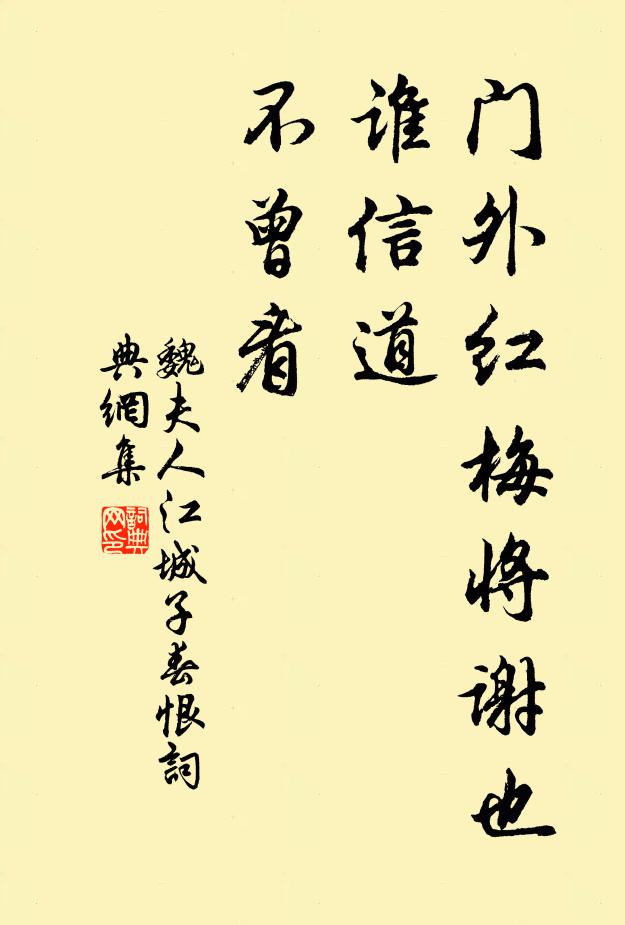 门外红梅将谢也
谁信道
不曾看
魏夫人江城子春恨詞
典網集
詞典
网印